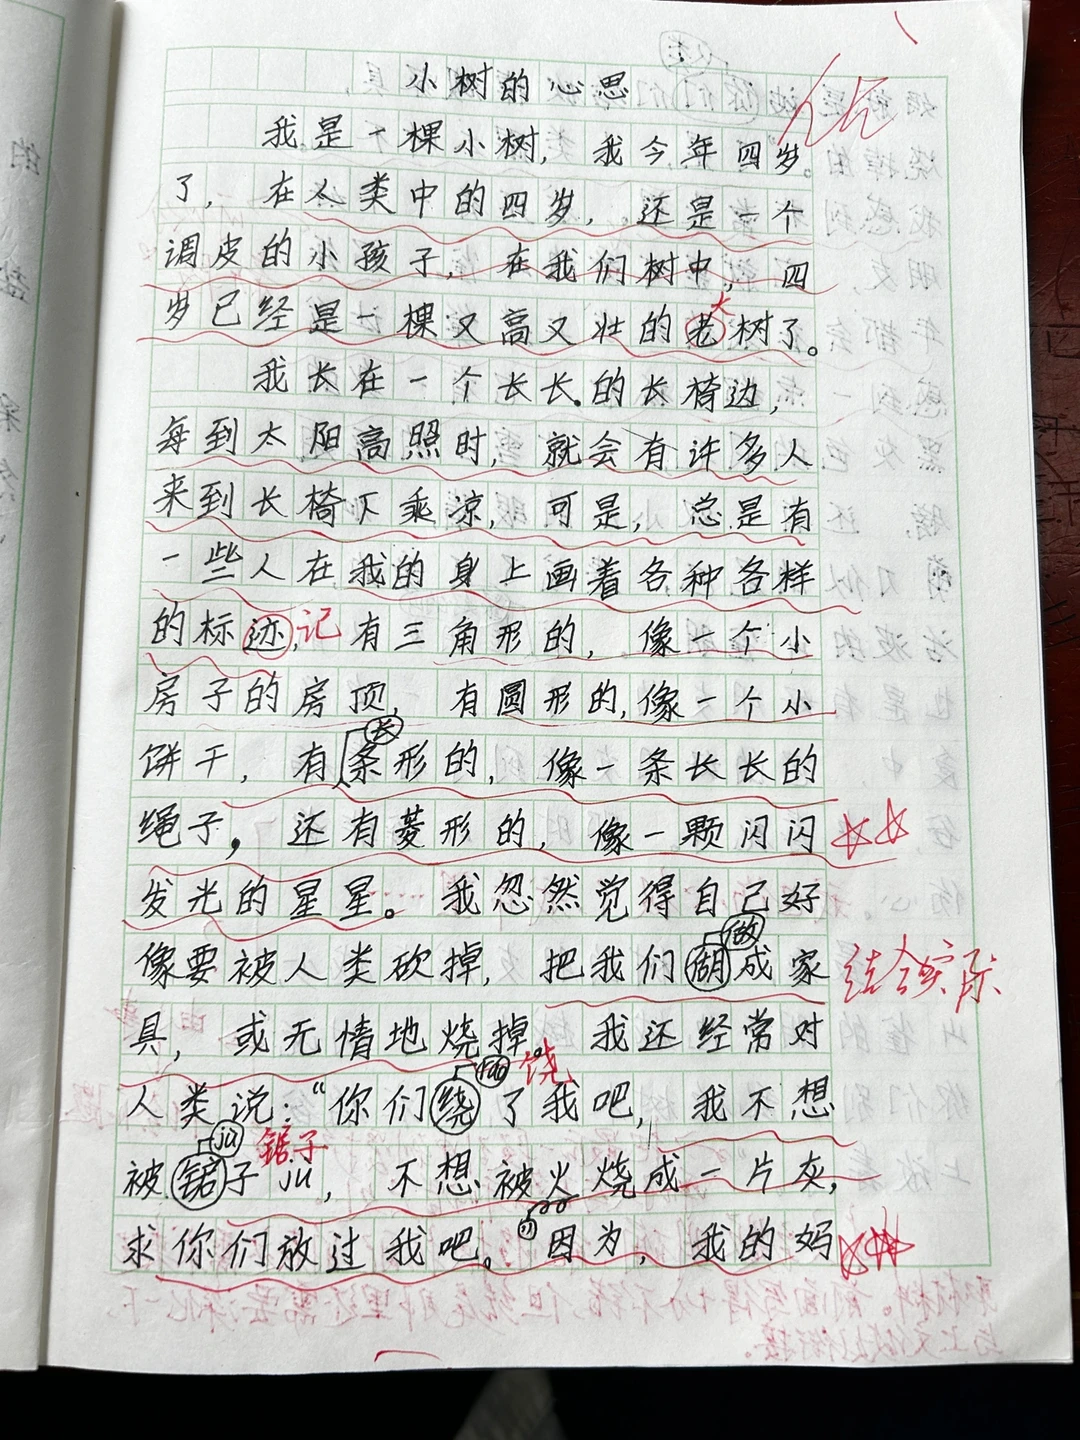 小树的心思
我是一棵小树，我今年四岁。
了，在人类中的四岁，还是一个
调皮的小孩子，在我们树中，四
岁已经是一棵又高又壮的老树了。
大
我长在一个长长的长椅边，
每到太阳高照时，就会有许多人
来到长椅下乘凉，可是，总是有
一些人在我的身上画着各种各样
的标迹，记有三角形的，像一个小
房子的房顶，有圆形的，像一个小
长
饼干，有条形的，像一条长长的
绳子，还有菱形的，像一颗闪闪
发光的星星。我忽然觉得自己好
做
像要被人类砍掉，把我们湖成家
结合实际
具，或无情地烧掉。我还经常对
饶
人类说："你们绕了我吧，我不想
jù
锯子
被锯子jù，不想被火烧成一片灰，
求你们放过我吧。因为，我的妈